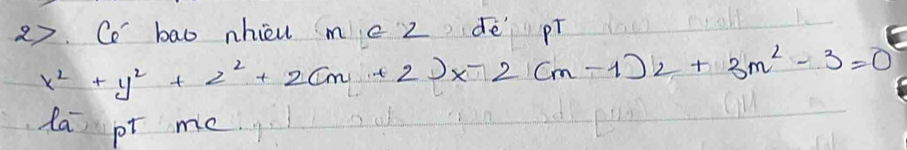 2>. Có bao nhiêu m ∈ Z để pT
x² + y² + z² + 2(m + 2)x - 2(m - 1)z + 3m² - 3 = 0
là pT mc